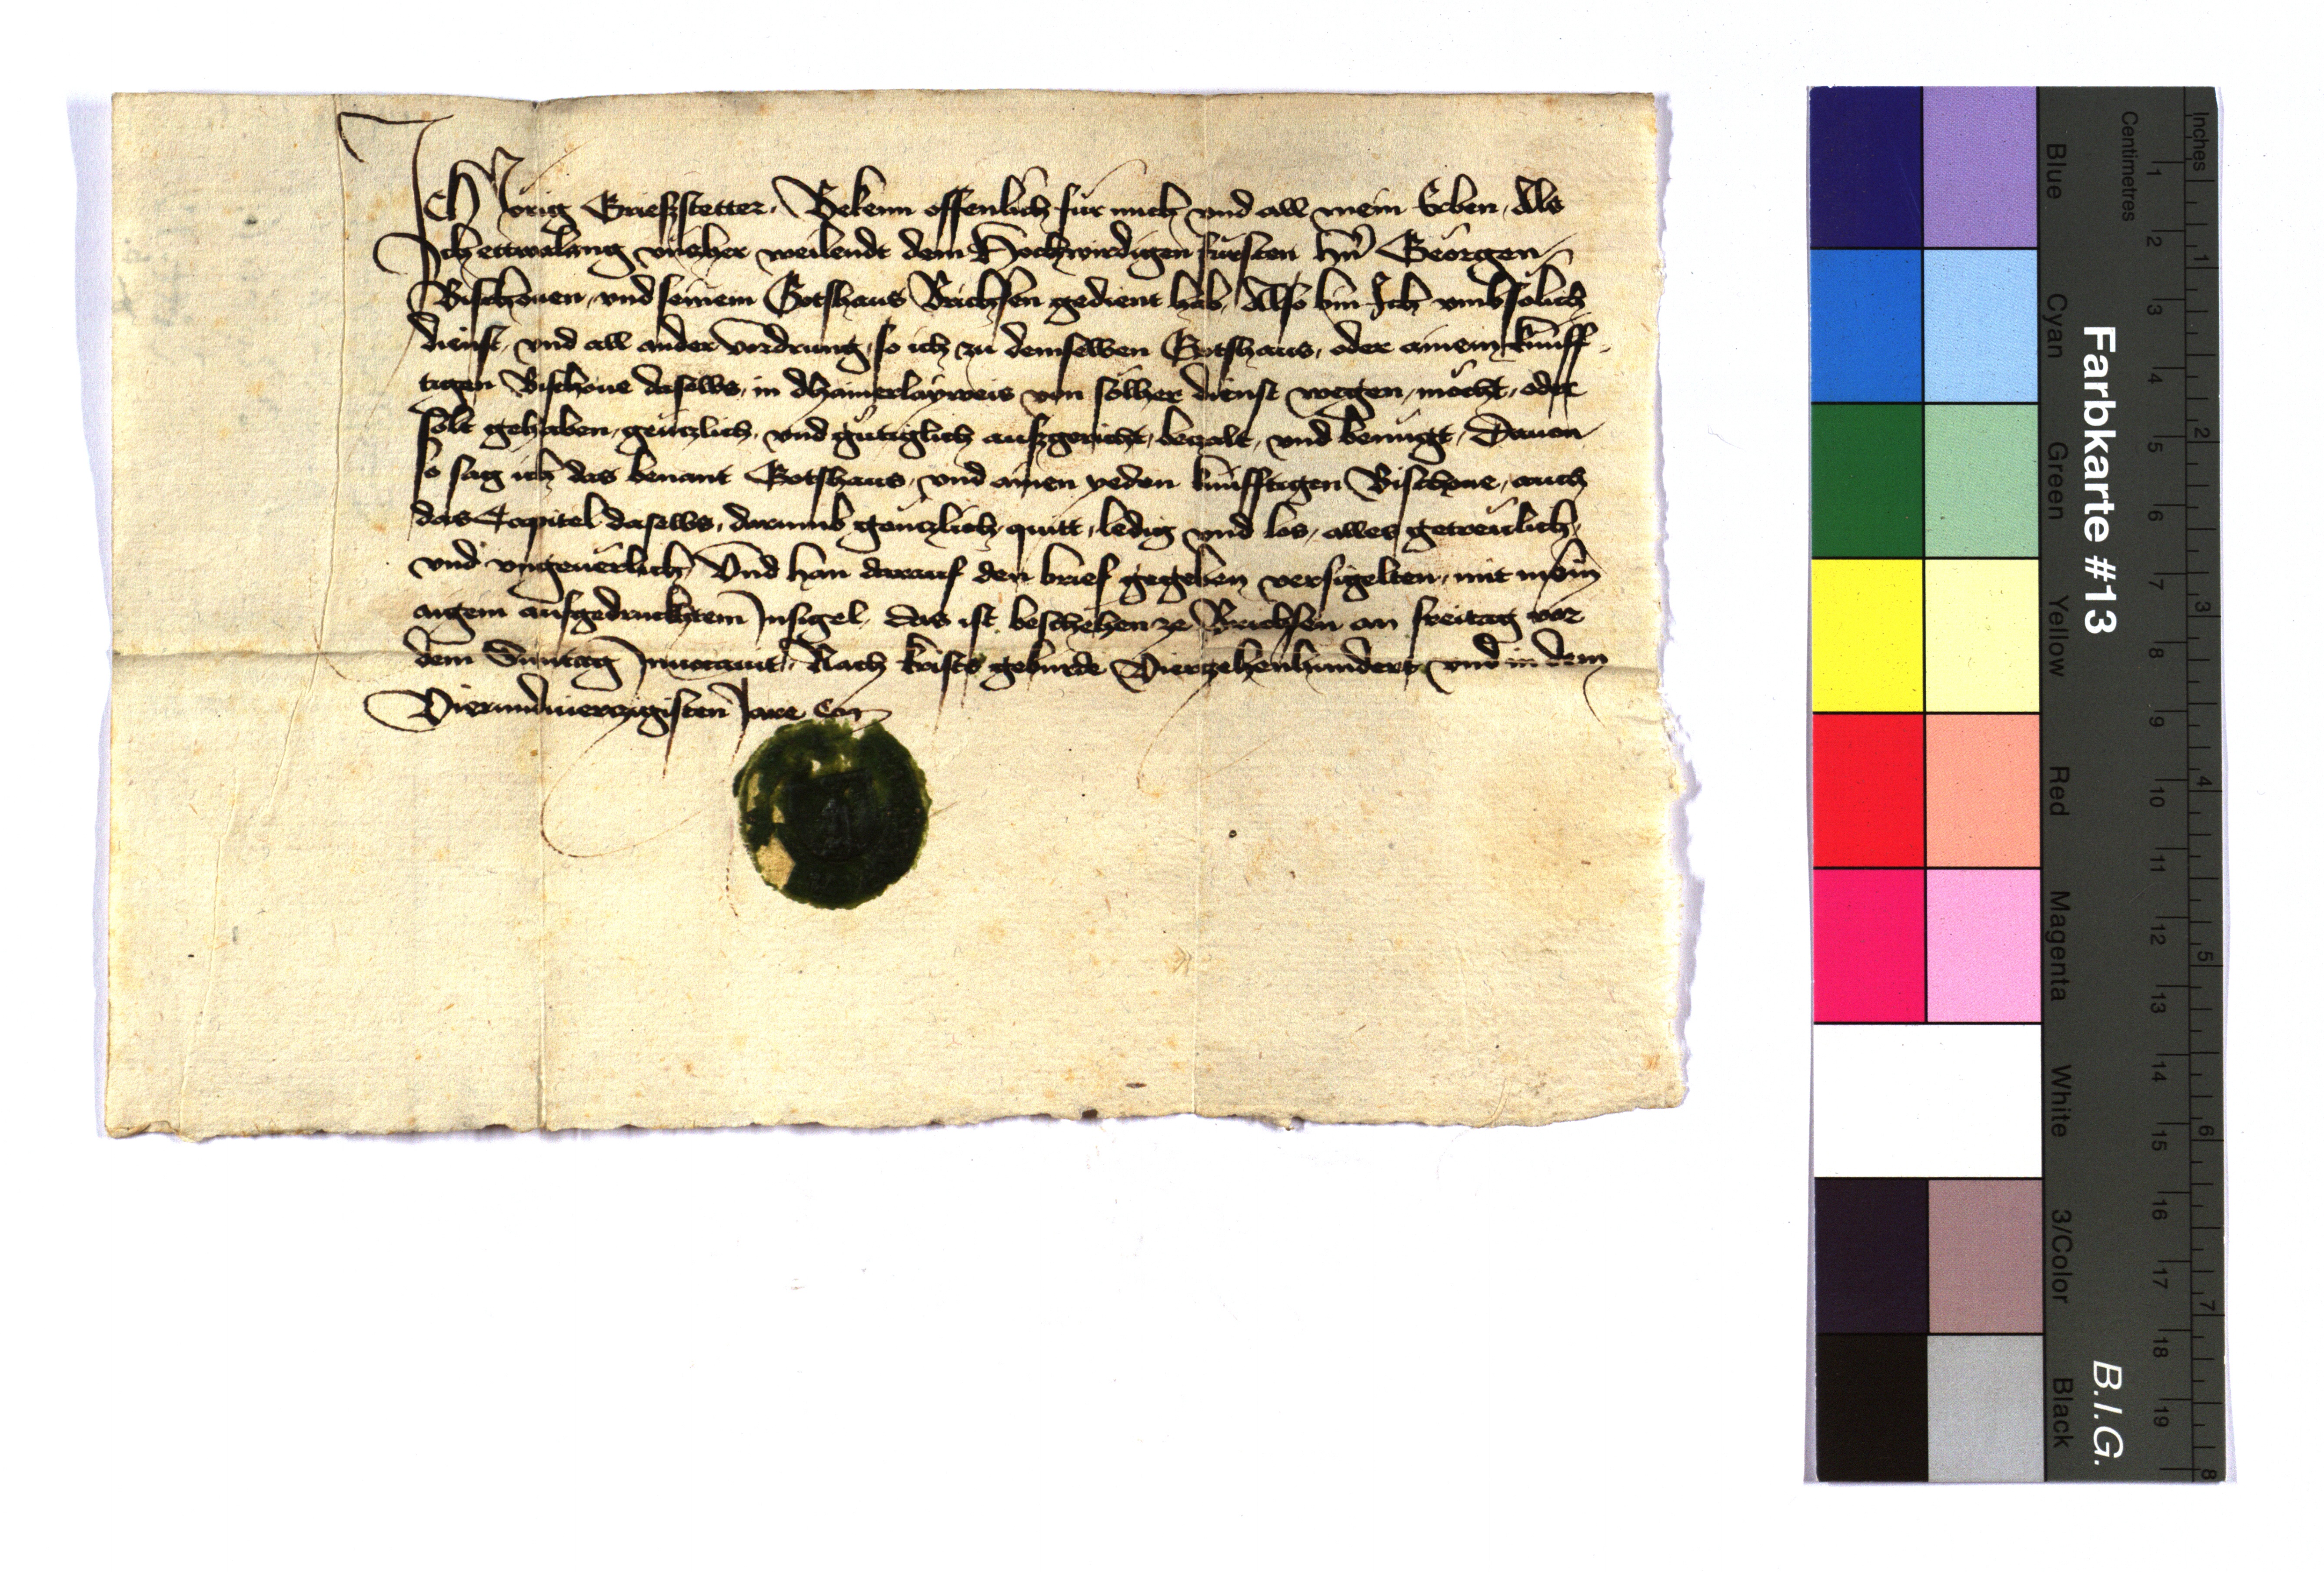 ICh Jörig Griesßstetter. Bekenn offenlich für mich vnd all mein Erben, Als
Ich ettwalang vncher weilendt dem Hochwirdigen fürsten hern Geörgen
Bischouen, vnd seinem Gotshaus Brichsen gedient hab, Also bin Ich vmb sölich
dienst, vnd all ander vordrung, so ich zu demselben Gotshaus, oder ainem künff-
tigen Bischoue daselbs, in dhainerlayweis von sölher dienst wegen, möcht, oder
solt gehaben, gentzlich, vnd gütiglich aufzgericht, betzalt, vnd benügt, Dauon
so sag ich das benant Gotshaus, vnd ainen yeden künfftigen Bischoue, auch
das Capitel daselbs, darumb gentzlich, quitt, ledig vnd los, alles getreülich,
vnd vngeuerlich, Vnd han darauf den brief gegeben versigelten, mit meim
aigem aufgedrucktem Insigel, das ist beschehen ze Brichsen an freitag vor
dem Suntag Inuocauit, Nach kristi geburde Viertzehenhundert, vnd in dem
Vierundviertzigisten Jare etc
Farbkarte #13
B.I.G.
Blue
Cyan
Green
Yellow
Red
Magenta
White
3/Color
Black
Centimetres
1 2 3 4 5 6 7 8 9 10 11 12 13 14 15 16 17 18 19
Inches
1 2 3 4 5 6 7 8